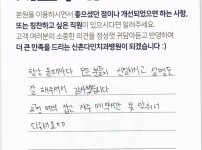 본원을 이용하시면서 좋으셨던 점이나 개선되었으면 하는 사항,
또는 칭찬하고 싶은 직원이 있으시다면 알려주세요.
고객 여러분의 소중한 의견을 정성껏 귀담아듣고 반영하여
더 큰 만족을 드리는 신촌다인치과병원이 되겠습니다 :)
항상 올때마다 모든 분들이 친절하시고 설명도
잘 해주셔서 감사합니다
교정 예약 잡고 자주